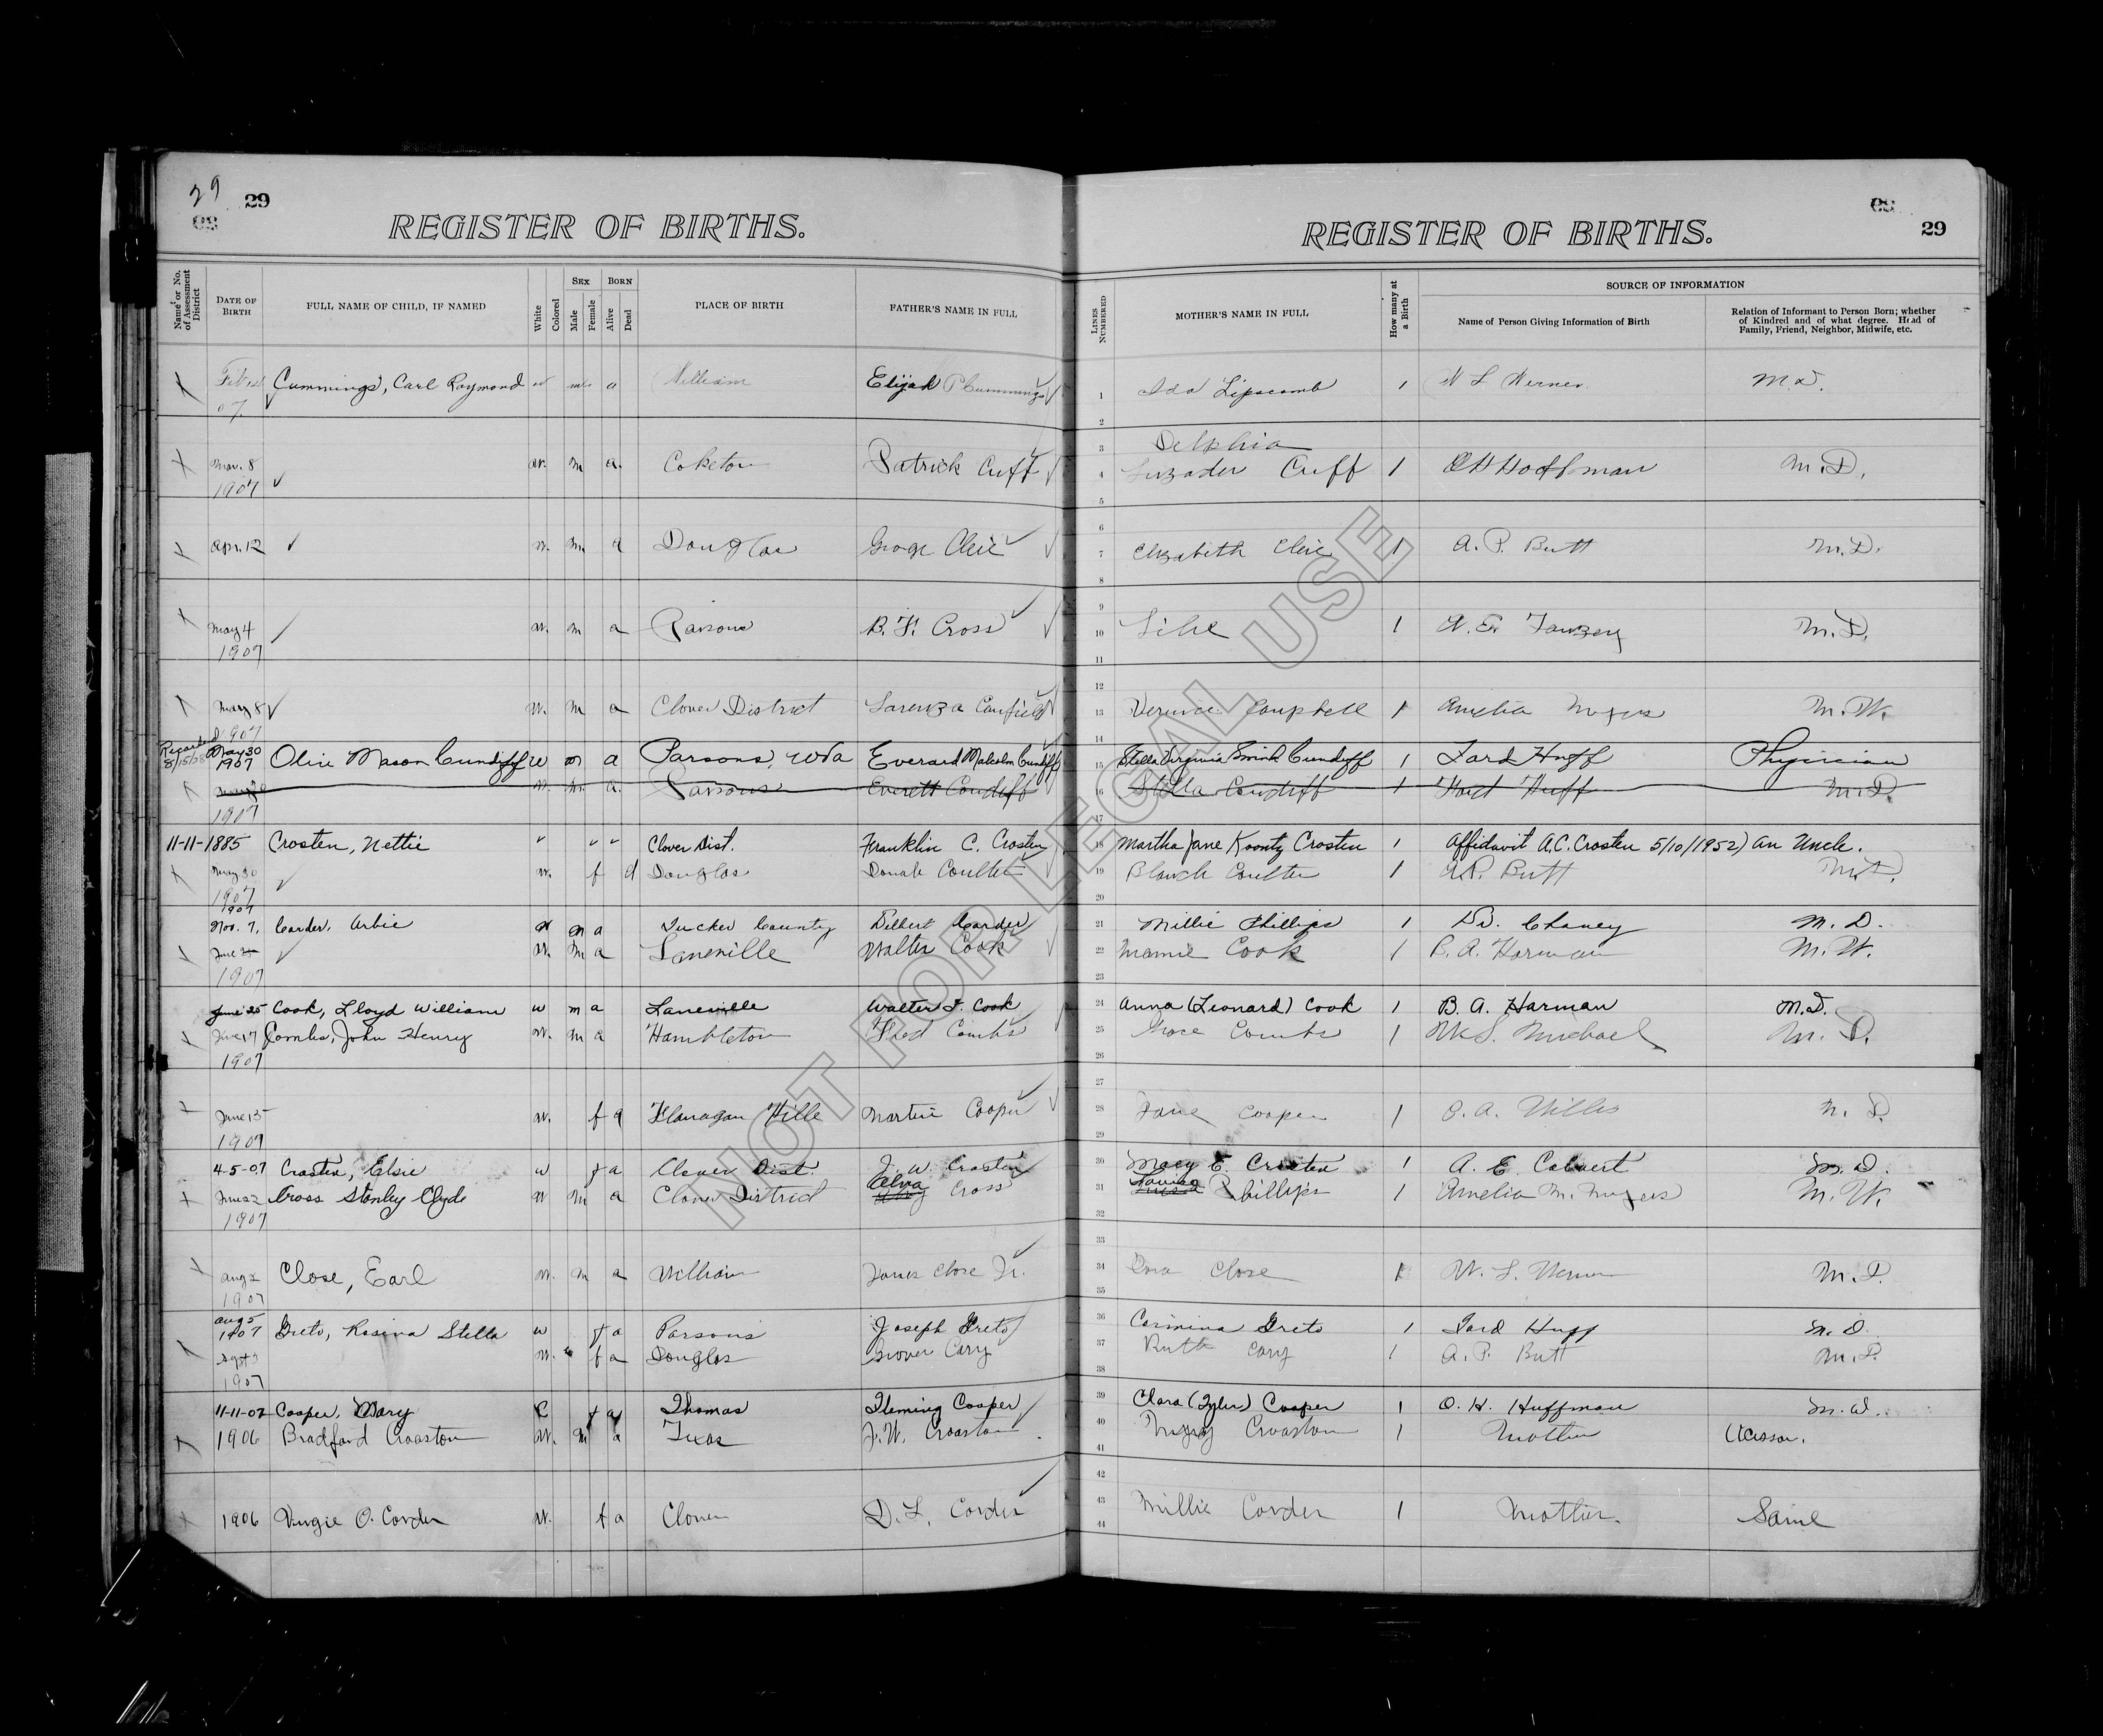 29
29
REGISTER OF BIRTHS.
REGISTER OF BIRTHS.
29
Name or No. of Assessment District
DATE OF BIRTH
FULL NAME OF CHILD, IF NAMED
White
Colored
SEX
Male
Female
BORN
Alive
Dead
PLACE OF BIRTH
FATHER'S NAME IN FULL
LINES NUMBERED
MOTHER'S NAME IN FULL
How many at a Birth
SOURCE OF INFORMATION
Name of Person Giving Information of Birth
Relation of Informant to Person Born; whether of Kindred and of what degree. Head of Family, Friend, Neighbor, Midwife, etc.
Cummings, Carl Raymond w m a William Elijah P Cummings 1 Ida Lipscomb 1 M.D.
07
2
3 Delphia
Mar. 8 w. m a. Coketon Patrick Cuff 4 Cuff 1 O H Hoffman M.D.
1907
5
6
Apr. 12 w. m. a Douglas George 7 Elizabeth 1 A. P. Butt M.D.
8
9
May 4 w. m a Parsons B. F. Cross 10 1 M.D.
1907
11
12
May 8 w. m a Clover District Canfield 13 Campbell 1 Amelia Myers M.W.
1907
14
Recorded 8/15/28 May 30 1907 Olin Mason Cundiff w m a Parsons, WVa Everard Malcolm Cundiff 15 Stella Virginia Smith Cundiff 1 Fard Huff Physician
w. m. a. Parsons Everett Cundiff 16 Stella Cundiff 1 Huff M.D.
1907
17
11-11-1885 Crosten, Nettie Clover Dist. Franklin C. Crosten 18 Martha Jane Koontz Crosten 1 Affidavit A.C. Crosten 5/10/1952) an Uncle.
May 30 w. f d Douglas Coulter 19 Blanch Coulter 1 A.P. Butt M.D.
1907
20
1907
Nov. 7, Carder, Arbie w m a Tucker County Delbert Carder 21 Millie Phillips 1 Dr. Chaney M.D.
June 25 w. m a Laneville Walter Cook 22 Mamie Cook 1 B. A. Harman M.W.
1907
23
June 25 Cook, Lloyd William w m a Laneville Walter F. Cook 24 Anna (Leonard) Cook 1 B. A. Harman M.D.
June 17 Combs, John Henry w. m a Hambleton Fred Combs 25 Combs 1 Michael M.D.
1907
26
27
June 13 w. f a Flanagan Hill Martin Cooper 28 Jane Cooper 1 M.D.
1907
29
4-5-07 Crosten, Elsie w f a Clover Dist. J. W. Crosten 30 Macy E. Crosten 1 A. E. Calvert M.D.
June 22 Cross Stanley Clyde w m a Clover District Alva Cross 31 Phillips 1 Amelia M. Myers M.W.
1907
32
33
Aug 2 Close, Earl w. m a William James Close Jr. 34 Close 1 M.D.
1907
35
Aug 5
1907 Greto, Rosina Stella w f a Parsons Joseph Greto 36 Carmina Greto 1 Fard Huff M.D.
Sept 3 w. f a Douglas Grover Cary 37 Ruth Cary 1 A. P. Butt M.D.
1907
38
11-11-07 Cooper, Mary C f a Thomas Fleming Cooper 39 Clara (Tyler) Cooper 1 O. H. Huffman M.D.
1906 Bradford Croaston w. m a Texas J. W. Croaston 40 Croaston 1 Mother
41
42
1906 Virgie O. Corder w. f a Clover D. L. Corder 43 Millie Corder 1 Mother. Same
44
NOT FOR LEGAL USE